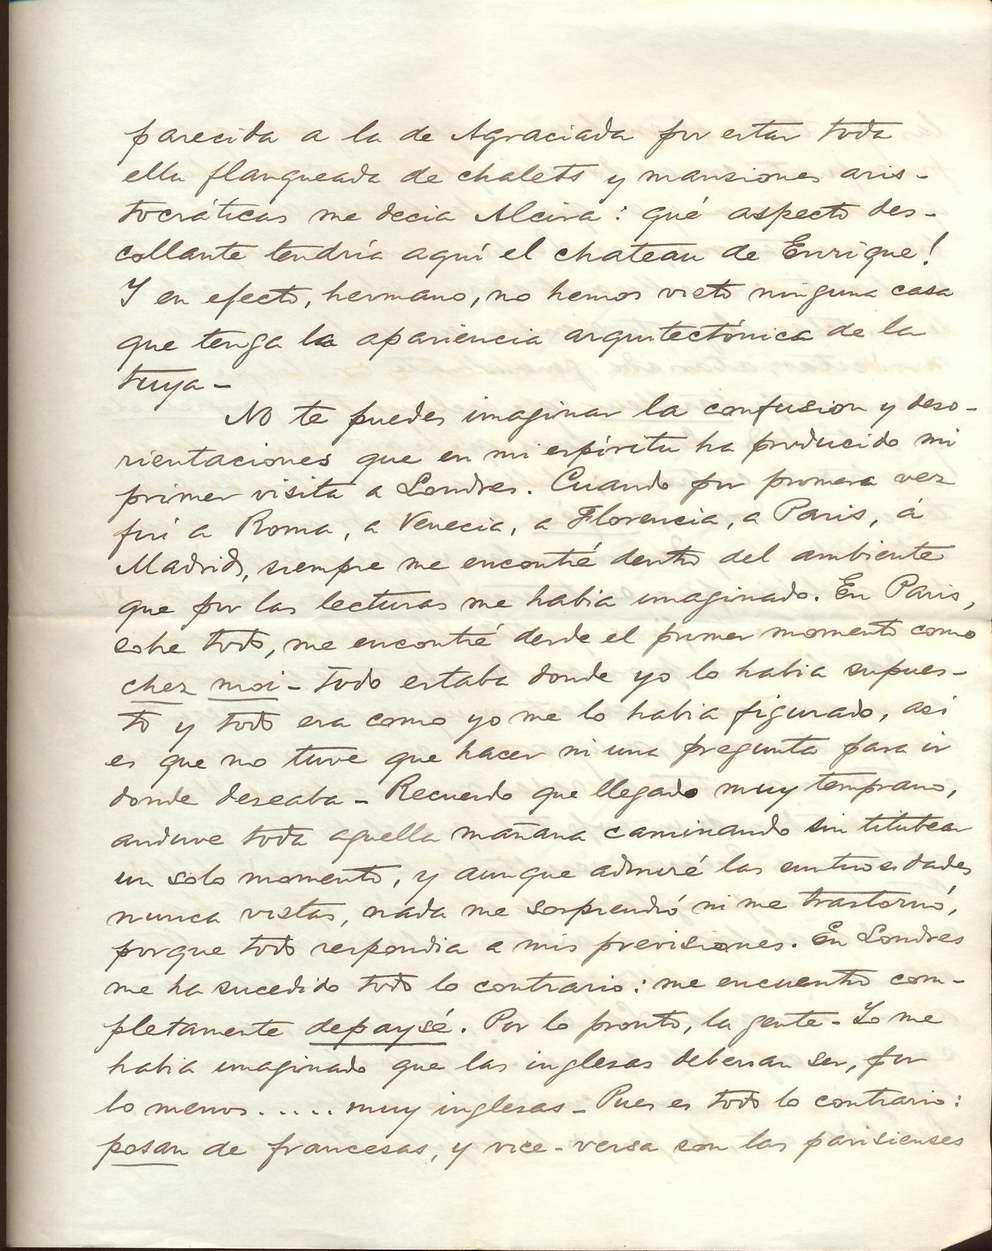 parecida a la de Agraciada por estar toda
ella flanqueada de chalets y mansiones aris-
tocráticas me decia Alcira: qué aspecto des-
collante tendría aquí el chateau de Enrique!
Y en efecto, hermano, no hemos visto ninguna casa
que tenga la apariencia arquitectónica de la
tuya -
No te puedes imaginar la confusion y deso-
rientaciones que en mi espíritu ha producido mi
primer visita a Londres. Cuando por primera vez
fuí a Roma, a Venecia, a Florencia, a Paris, á
Madrid, siempre me encontré dentro del ambiente
que por las lecturas me habia imaginado. En Paris,
sobre todo, me encontré desde el primer momento como
chez moi - Todo estaba donde yo lo habia supues-
to y todo era como yo me lo habia figurado, asi
es que no tuve que hacer ni una pregunta para ir
donde deseaba - Recuerdo que llegado muy temprano,
anduve toda aquella mañana caminando sin titubear
un solo momento, y aunque admiré las suntuosidades
nunca vistas, nada me sorprendió ni me trastornó,
porque todo respondia a mis previsiones. En Londres
me ha sucedido todo lo contrario: me encuentro com-
pletamente depaysé. Por lo pronto, la gente - Yo me
habia imaginado que las inglesas deberian ser, por
lo menos ..... muy inglesas - Pues es todo lo contrario:
posan de francesas, y vice-versa son las parisienses